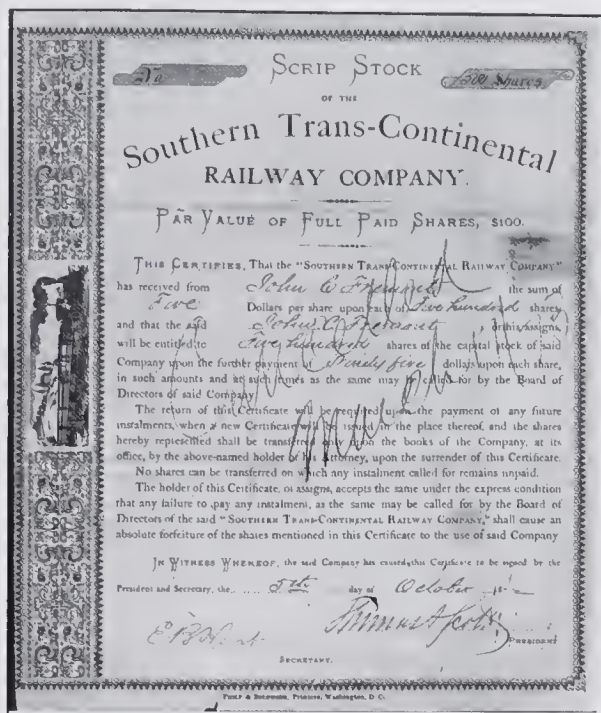 No
SCRIP STOCK
500 Shares
OF THE
Southern Trans-Continental
RAILWAY COMPANY.
PAR VALUE OF FULL PAID SHARES, $100.
THIS CERTIFIES, That the "SOUTHERN TRANS-CONTINENTAL RAILWAY COMPANY"
has received from John C Fremont the sum of
Five Dollars per share upon each of Five hundred shares
and that the said John C Fremont , or his assigns,
will be entitled to Five hundred shares of the capital stock of said
Company upon the further payment of Ninety five dollars upon each share,
in such amounts and at such times as the same may be called for by the Board of
Directors of said Company
The return of this Certificate will be required upon the payment of any future
instalments, when a new Certificate will be issued in the place thereof, and the shares
hereby represented shall be transferred only upon the books of the Company, at its
office, by the above-named holder or his Attorney, upon the surrender of this Certificate.
No shares can be transferred on which any instalment called for remains unpaid.
The holder of this Certificate, or assigns, accepts the same under the express condition
that any failure to pay any instalment, as the same may be called for by the Board of
Directors of the said "SOUTHERN TRANS-CONTINENTAL RAILWAY COMPANY," shall cause an
absolute forfeiture of the shares mentioned in this Certificate to the use of said Company
IN WITNESS WHEREOF, the said Company has caused this Certificate to be signed by the
President and Secretary, the 5th day of October 18
Thomas A Scott
PRESIDENT
SECRETARY.
Printers, Washington, D. C.